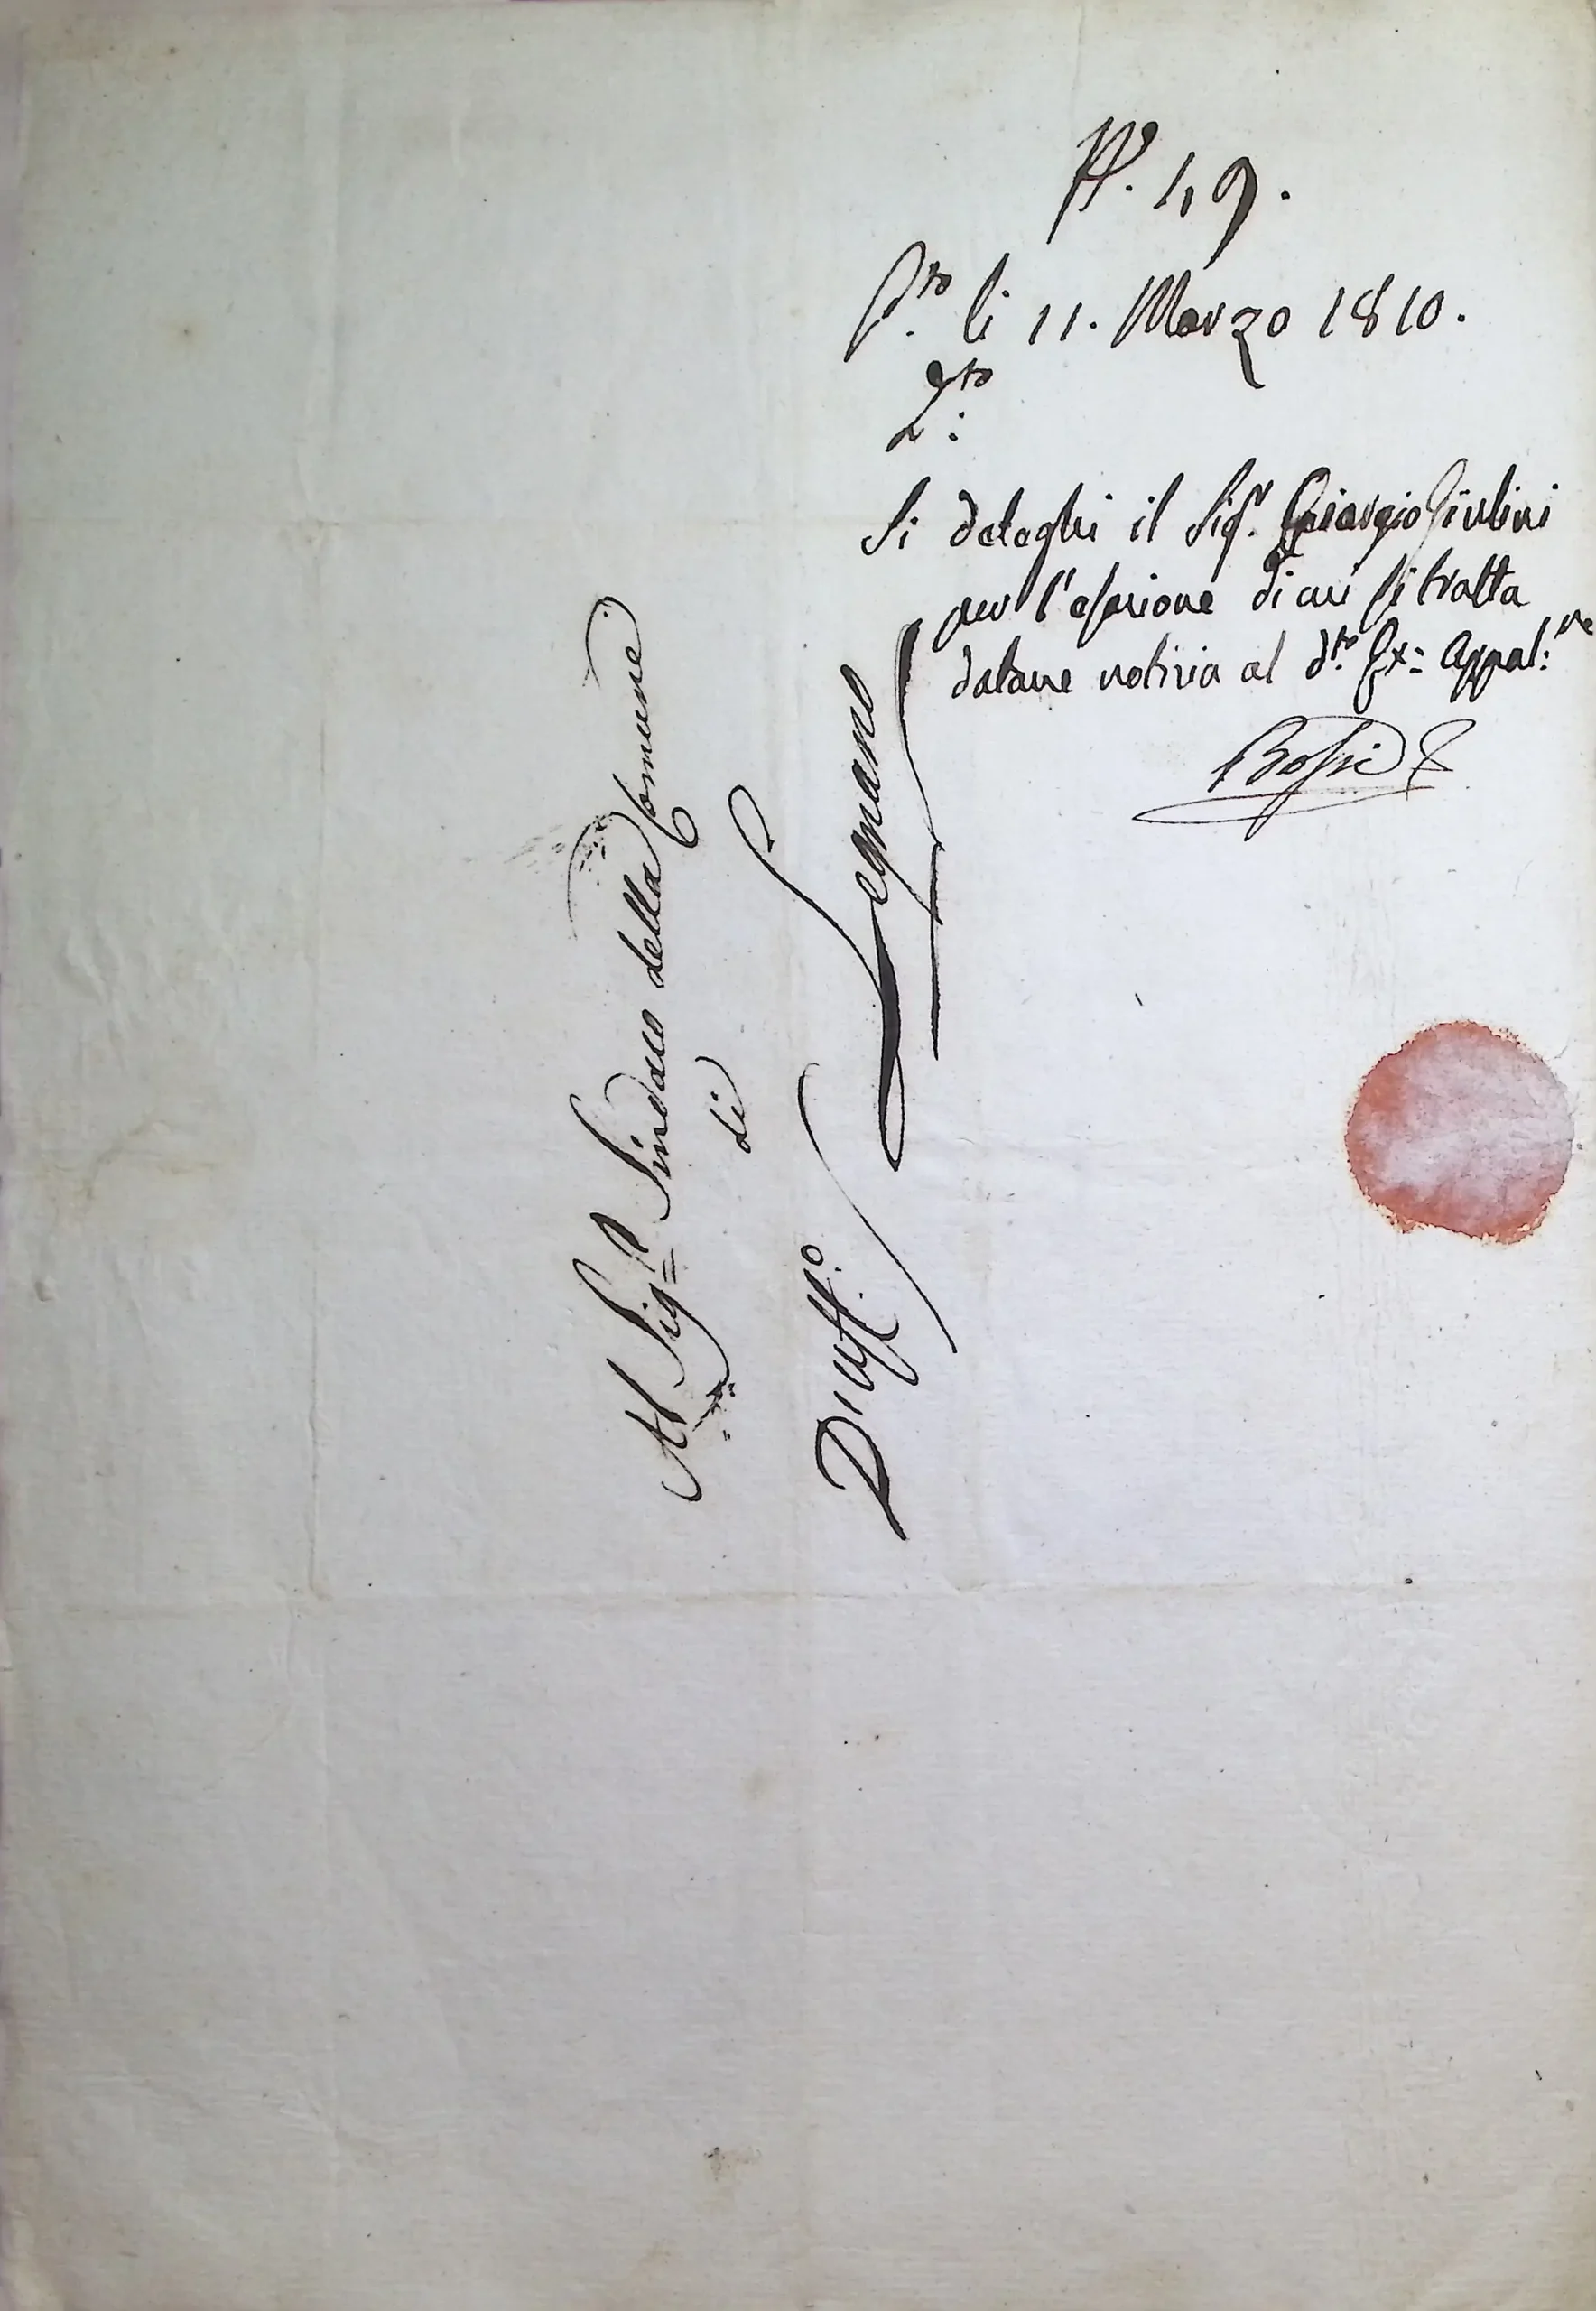 N.° 49.
P.to li 11. Marzo 1810.
L.to:
Si deleghi il Sig.r Giorgio Giulini
per l'esazione di cui si tratta
datane notizia al d.to Ex: Appal:re
Bossi
Al Sig.r Sindaco della Comune
di
D'Uff.o Legnano